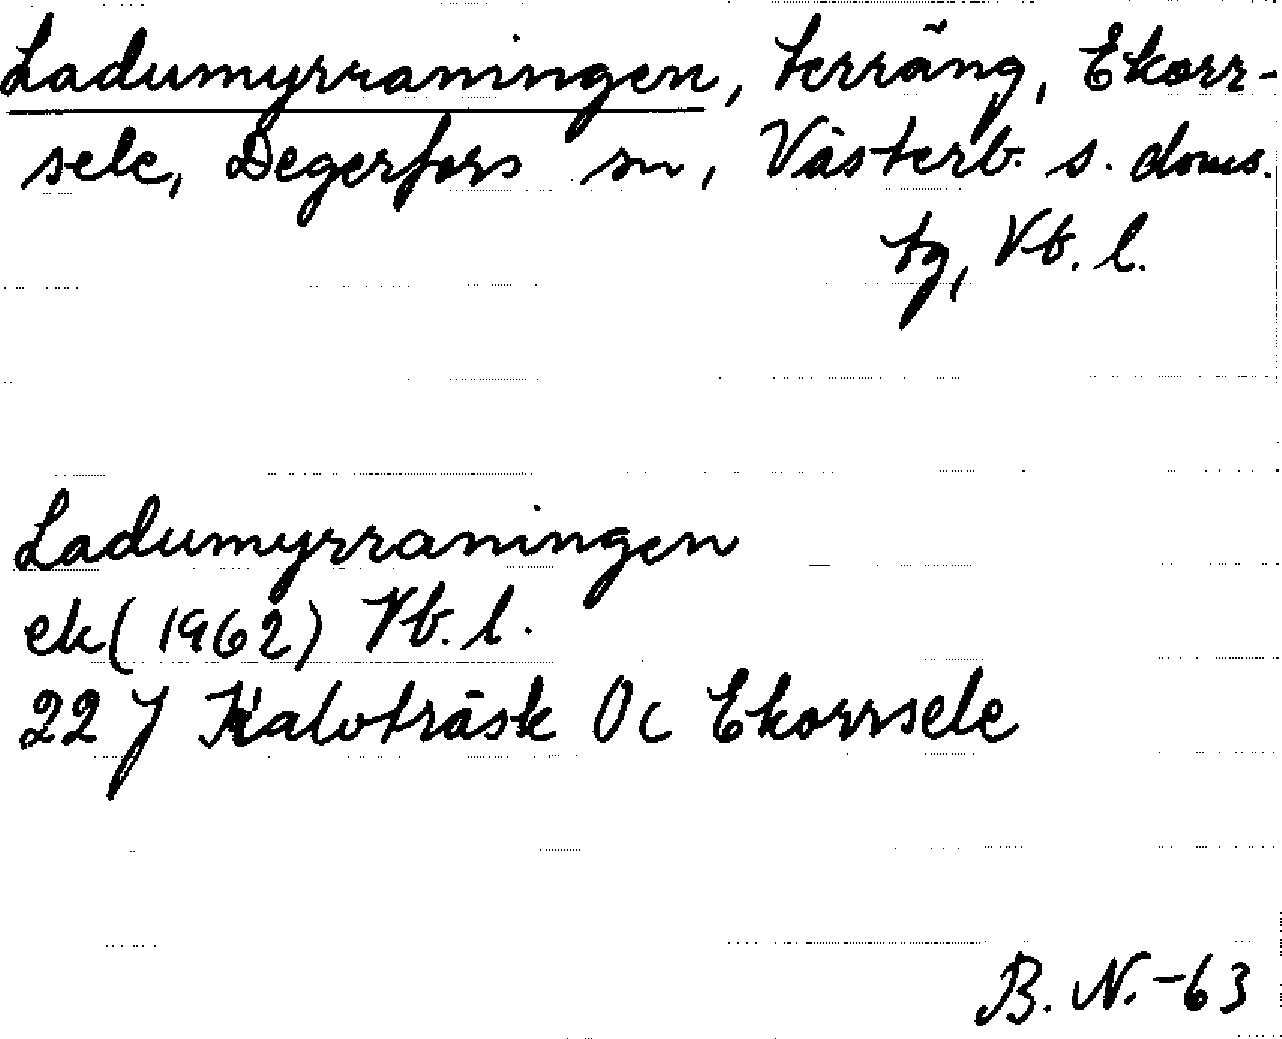 Ladumyrraningen, terräng, Ekorr-
sele, Degerfors sn, Västerb. s. doms.
tg, Vb. l.
Ladumyrraningen
ek (1962) Vb. l.
22 J Kalvträsk 0c Ekorrsele
B. N. -63